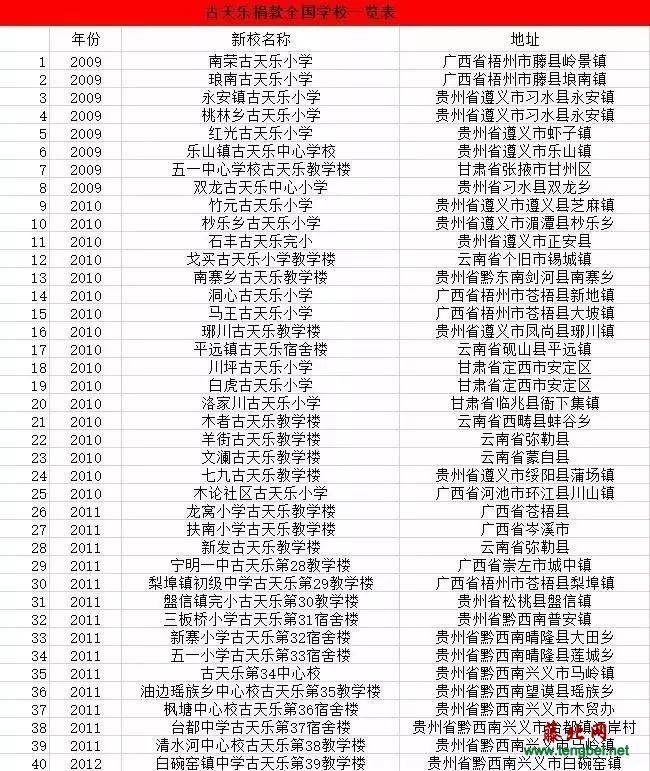 古天乐捐款全国学校一览表
年份 新校名称 地址
1 2009 南荣古天乐小学 广西省梧州市藤县岭景镇
2 2009 琅南古天乐小学 广西省梧州市藤县埌南镇
3 2009 永安镇古天乐小学 贵州省遵义市习水县永安镇
4 2009 桃林乡古天乐小学 贵州省遵义市习水县永安镇
5 2009 红光古天乐小学 贵州省遵义市虾子镇
6 2009 乐山镇古天乐中心学校 贵州省遵义市乐山镇
7 2009 五一中心学校古天乐教学楼 甘肃省张掖市甘州区
8 2009 双龙古天乐中心小学 贵州省习水县双龙乡
9 2010 竹元古天乐小学 贵州省遵义市遵义县芝麻镇
10 2010 杪乐乡古天乐小学 贵州省遵义市湄潭县杪乐乡
11 2010 石丰古天乐完小 贵州省遵义市正安县
12 2010 戈买古天乐小学教学楼 云南省个旧市锡城镇
13 2010 南寨乡古天乐教学楼 贵州省黔东南剑河县南寨乡
14 2010 洞心古天乐小学 广西省梧州市苍梧县新地镇
15 2010 马王古天乐小学 广西省梧州市苍梧县大坡镇
16 2010 琊川古天乐教学楼 贵州省遵义市凤尚县琊川镇
17 2010 平远镇古天乐宿舍楼 云南省砚山县平远镇
18 2010 川坪古天乐小学 甘肃省定西市安定区
19 2010 白虎古天乐小学 甘肃省定西市安定区
20 2010 洛家川古天乐小学 甘肃省临兆县衙下集镇
21 2010 木者古天乐教学楼 云南省西畴县蚌谷乡
22 2010 羊街古天乐教学楼 云南省弥勒县
23 2010 文澜古天乐教学楼 云南省蒙自县
24 2010 七九古天乐教学楼 贵州省遵义市绥阳县蒲场镇
25 2010 木论社区古天乐小学 广西省河池市环江县川山镇
26 2011 龙窝小学古天乐教学楼 广西省苍梧县
27 2011 扶南小学古天乐教学楼 广西省岑溪市
28 2011 新发古天乐教学楼 云南省弥勒县
29 2011 宁明一中古天乐第28教学楼 广西省崇左市城中镇
30 2011 梨埠镇初级中学古天乐第29教学楼 广西省梧州市苍梧县梨埠镇
31 2011 盤信镇完小古天乐第30教学楼 贵州省松桃县盤信镇
32 2011 三板桥小学古天乐第31宿舍楼 贵州省黔西南普安镇
33 2011 新寨小学古天乐第32宿舍楼 贵州省黔西南晴隆县大田乡
34 2011 五一小学古天乐第33宿舍楼 贵州省黔西南晴隆县莲城乡
35 2011 古天乐第34中心校 贵州省黔西南兴义市马岭镇
36 2011 油边瑶族乡中心校古天乐第35教学楼 贵州省黔西南望谟县瑶族乡
37 2011 枫塘中心校古天乐第36宿舍楼 贵州省黔西南兴义市木贸办
38 2011 台都中学古天乐第37宿舍楼 贵州省黔西南兴义市 都镇 岸村
39 2011 清水河中心校古天乐第38教学楼 贵州省黔西南兴义市马岭镇
40 2012 白碗窑镇中学古天乐第39教学楼 贵州省黔西南兴义市白碗窑镇
藤北网
www.tengbei.net